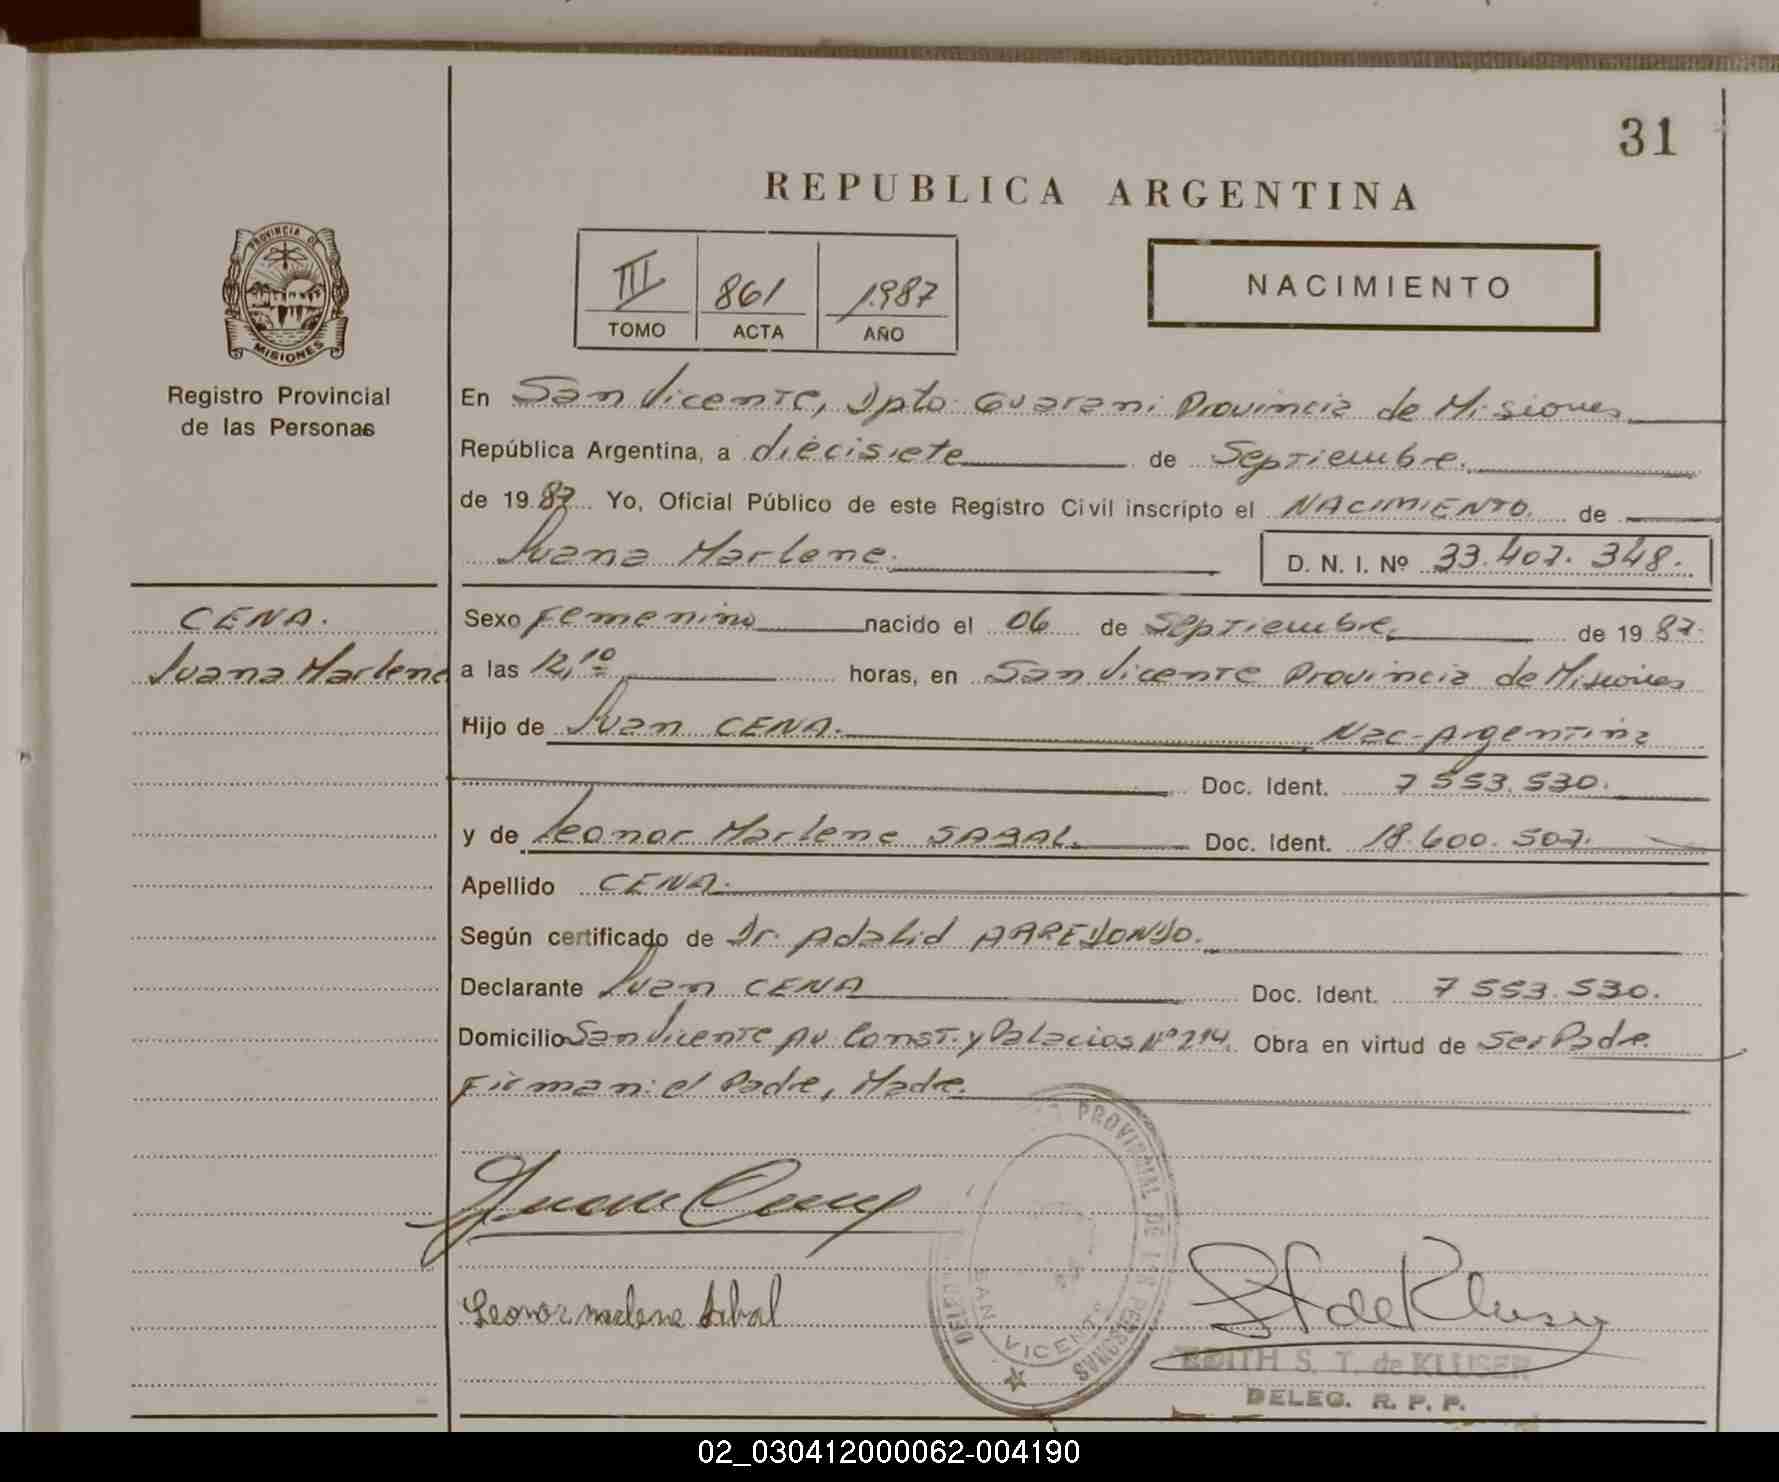 31
REPUBLICA ARGENTINA
PROVINCIA DE
MISIONES
Registro Provincial
de las Personas
III 861 1.987
TOMO ACTA AÑO
NACIMIENTO
En San Vicente, Dpto. Guarani Provincia de Misiones
República Argentina, a diecisiete de Septiembre.
de 19 87 Yo, Oficial Público de este Registro Civil inscripto el NACIMIENTO. de
Juana Marlene. D. N. I. Nº 33.407.348.
CENA.
Juana Marlene
Sexo Femenino nacido el 06 de Septiembre, de 19 87.
a las 12,10 horas, en San Vicente Provincia de Misiones
Hijo de Juan CENA. Nac-Argentina
Doc. Ident. 7 553.530.
y de Leonor Marlene SABAL. Doc. Ident. 18.600.507.
Apellido CENA.
Según certificado de Dr. Adalid ARREDONDO.
Declarante Juan CENA Doc. Ident. 7 553.530.
Domicilio San Vicente Av Const. y Palacios Nº 214. Obra en virtud de Ser Padre.
Firman: el Padre, Madre.
PROVINCIAL DE LAS PERSONAS
SAN VICENTE
Leonor marlene Sabal
EDITH S. T. de KLUSER
DELEG. R. P. P.
02_030412000062-004190